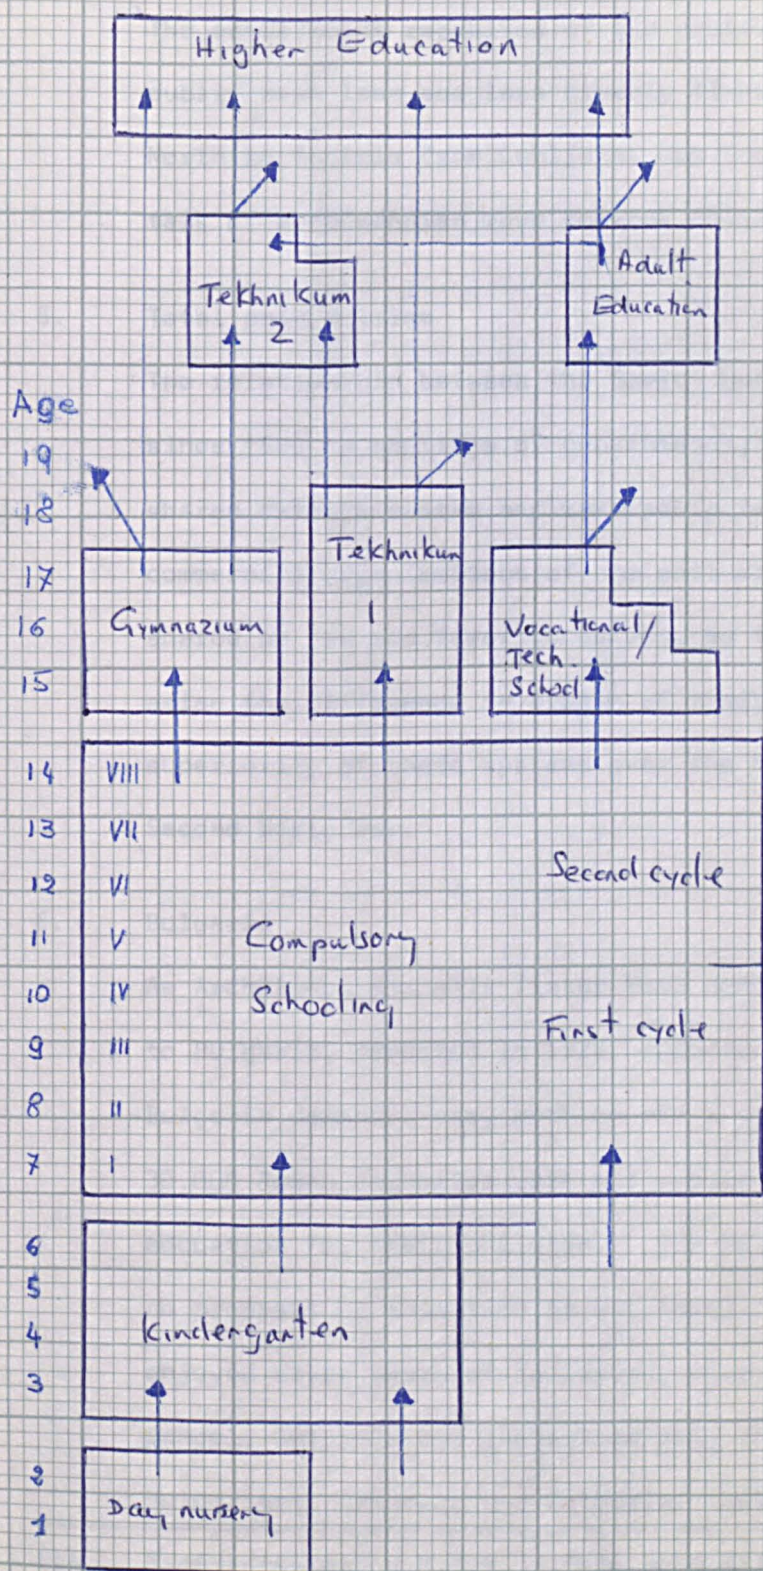 Higher Education
Tekhnikum
2
Adult
Education
Age
19
18
17
16
15
Tekhnikum
1
Gymnazium
Vocational/
Tech.
School
14 VIII
13 VII
12 VI
11 V
10 IV
9 III
8 II
7 I
Second cycle
Compulsory
Schooling
First cycle
6
5
4
3
Kindergarten
2
1
Day nursery